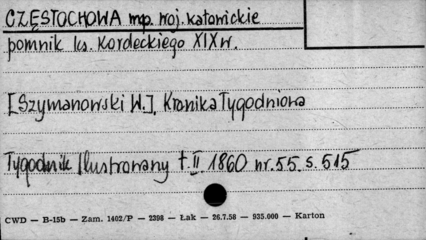 CZĘSTOCHOWA mp. woj. katowickie
pomnik ks. Kordeckiego XIX w.
[Szymanowski W.], Kronika Tygodniowa
Tygodnik Ilustrowany t. II 1860 nr. 55. s. 515
CWD — B-15b — Zam. 1402/P — 2398 — Łak — 26.7.58 — 935.000 — Karton